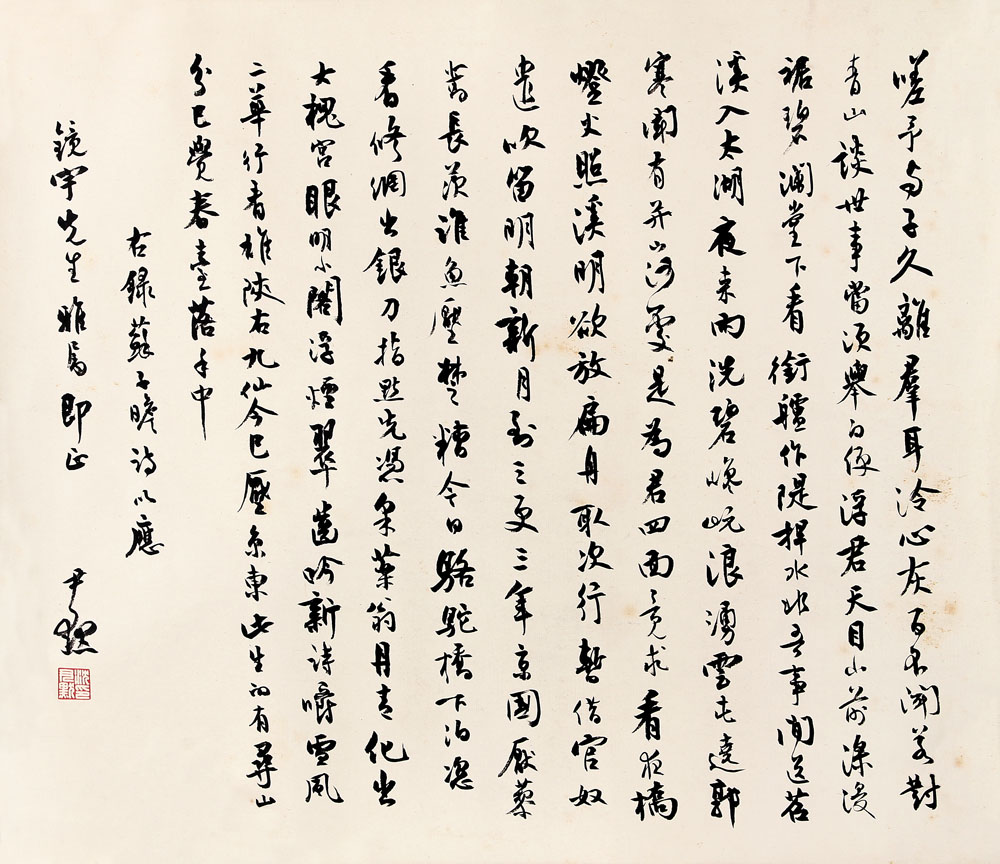 嗟予与子久離羣耳冷心灰百不聞若對
青山談世事當須舉白便浮君天目山前淥浸
裾碧瀾堂下看銜艫作隄捍水非吾事閒送苕
溪入太湖夜來雨洗碧巑岏浪湧雲屯遶郭
寒聞有弁山何處是為君四面竟求看夜橋
燈火照溪明欲放扁舟取次行暫借官奴
遣吹笛明朝新月到三更三年京國厭藜
蒿長羨淮魚壓楚糟今日駱駝橋下泊恣
看修網出銀刀指點先憑采藥翁丹青化出
大槐宮眼明小閣浮煙翠齒吟新詩嚼雪風
二華行看雄陝右九仙今已壓京東此生的有尋山
分已覺春臺落手中
右錄蘇子瞻詩以應
鏡宇先生雅屬即正
尹默